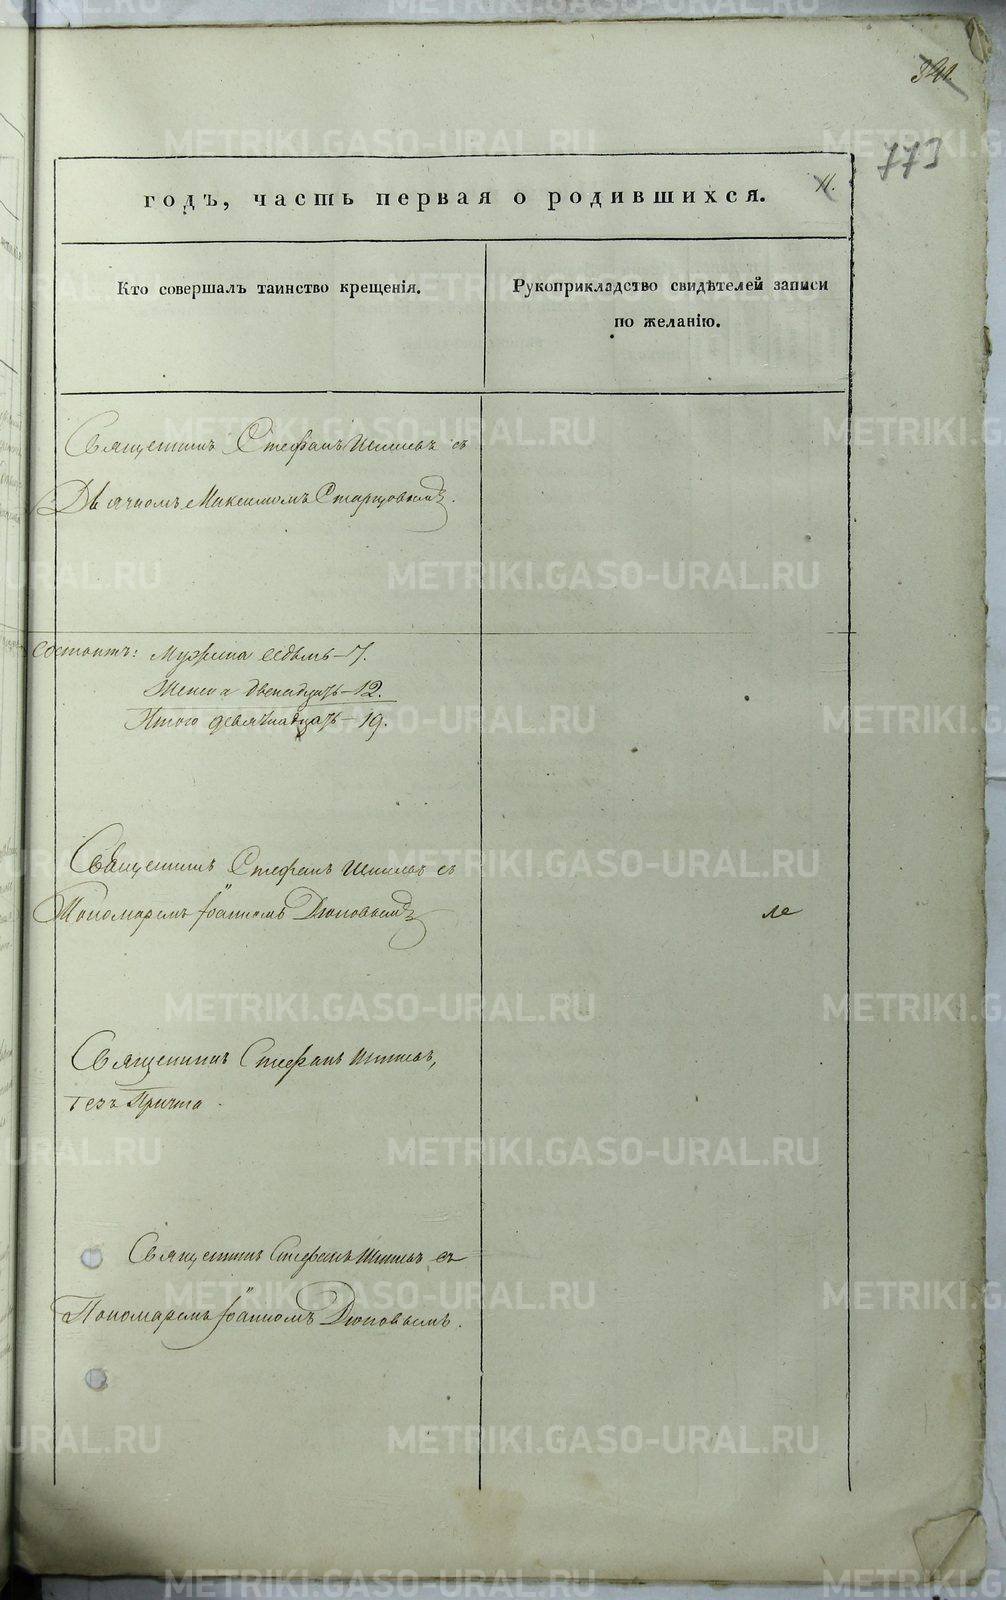 341.
773
11.
годъ, часть первая о родившихся.
Кто совершалъ таинство крещенія.
Рукоприкладство свидѣтелей записи
по желанію.
Священникъ Стефанъ съ
Дьячкомъ Максимомъ Старцовымъ.
состоитъ: Мужеска седмь – 7.
Женска двенадцать – 12.
Итого девятнадцать – 19.
Священникъ Стефанъ съ
Пономаремъ Іоанномъ Дюковымъ
ле
Священникъ Стефанъ
безъ Причта.
Священникъ Стефанъ съ
Пономаремъ Іоанномъ Дюковымъ.
METRIKI.GASO-URAL.RU